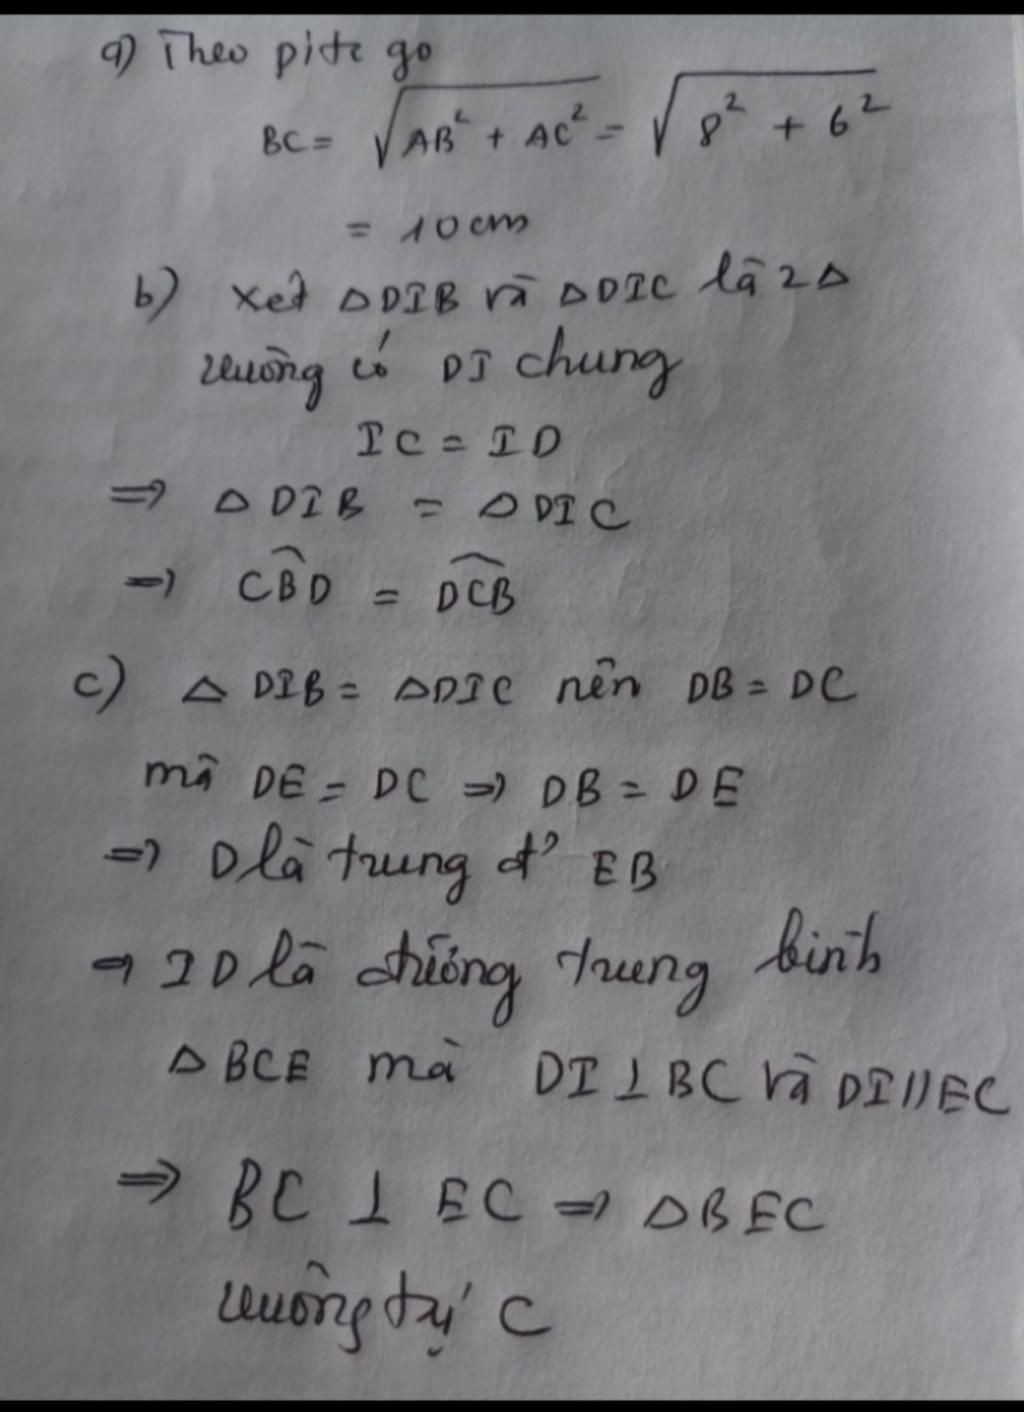 a) Theo pitago
BC = √AB² + AC² = √8² + 6²
= 10cm
b) xét △DIB và △DIC là 2△
vuông có DI chung
IC = ID
⇒ △DIB = △DIC
⇒ CB̂D = DĈB
c) △DIB = △DIC nên DB = DC
mà DE = DC ⇒ DB = DE
⇒ D là trung đ' EB
⇒ ID là đường trung bình
△BCE mà DI ⊥ BC và DI // EC
⇒ BC ⊥ EC ⇒ △BEC
vuông tại C